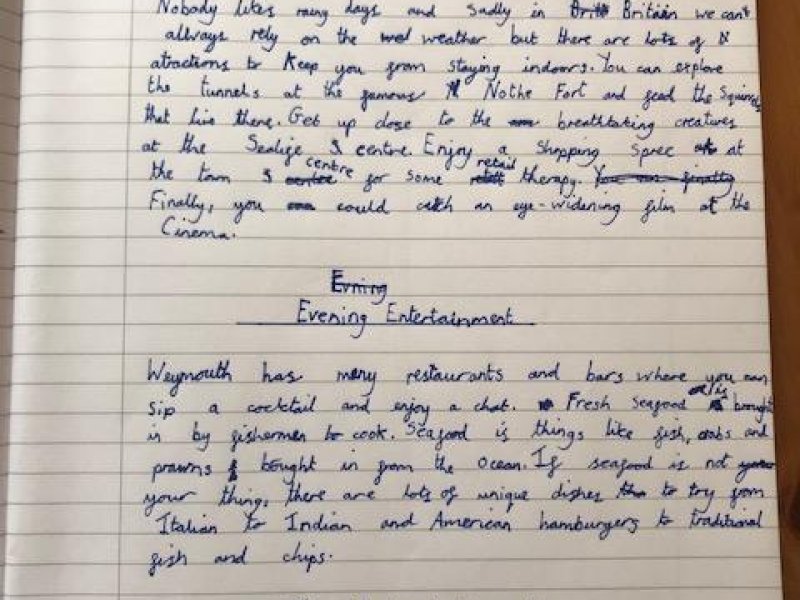 Nobody likes rainy days and sadly in Britain we can't
allways rely on the weather but there are lots of
atractions to keep you from staying indoors. You can explore
the tunnels at the famous Nothe Fort and feed the Squirrels
that live there. Get up close to the breathtaking creatures
at the Sealife centre. Enjoy a shopping spree at
the town centre for some retail therapy. You can finally
Finally, you could catch an eye-widening film at the
Cinema.
Evning
Evening Entertainment
Weymouth has many restaurants and bars where you can
sip a cocktail and enjoy a chat. Fresh seafood is brought
in by fishermen to cook. Seafood is things like fish, crabs and
prawns bought in from the ocean. If seafood is not
your thing, there are lots of unique dishes to try from
Italian to Indian and American hamburgers to traditional
fish and chips.